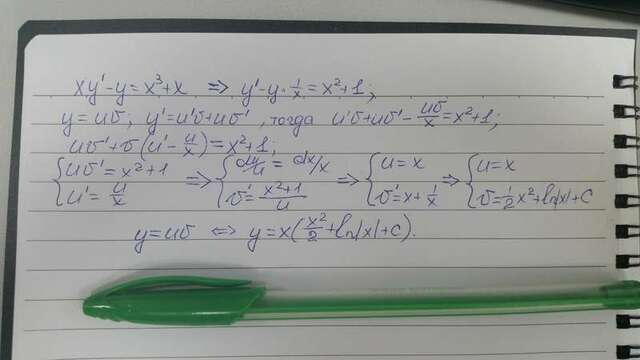 xy'-y=x³+x => y'-y·1/x=x²+1;
y=uv; y'=u'v+uv', тогда u'v+uv'-uv/x=x²+1;
uv'+v(u'-u/x)=x²+1;
{uv'=x²+1 => {du/u=dx/x => {u=x => {u=x
{u'=u/x {v'=(x²+1)/u {v'=x+1/x {v=1/2x²+ln|x|+C
y=uv <=> y=x(x²/2+ln|x|+C).